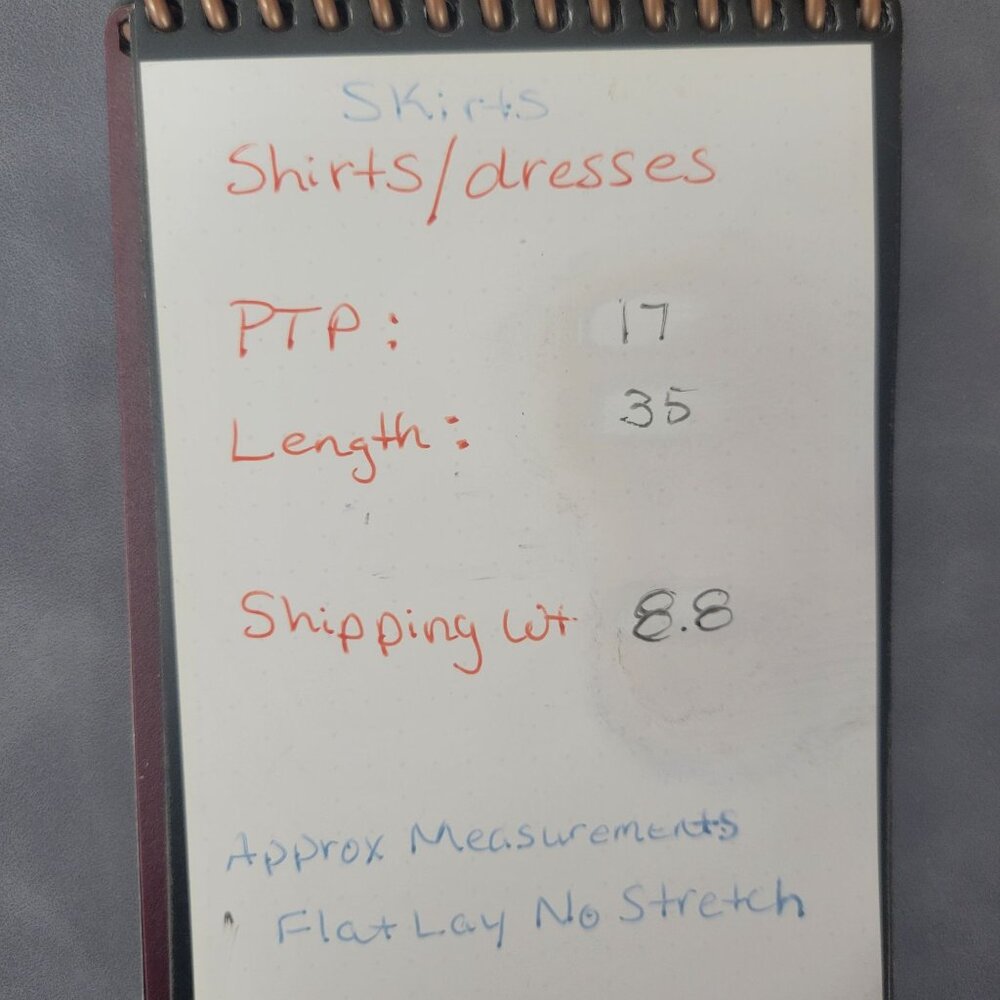 SKirts
Shirts/dresses
PTP: 17
Length: 35
Shipping Wt 8.8
Approx Measurements
Flat Lay No Stretch